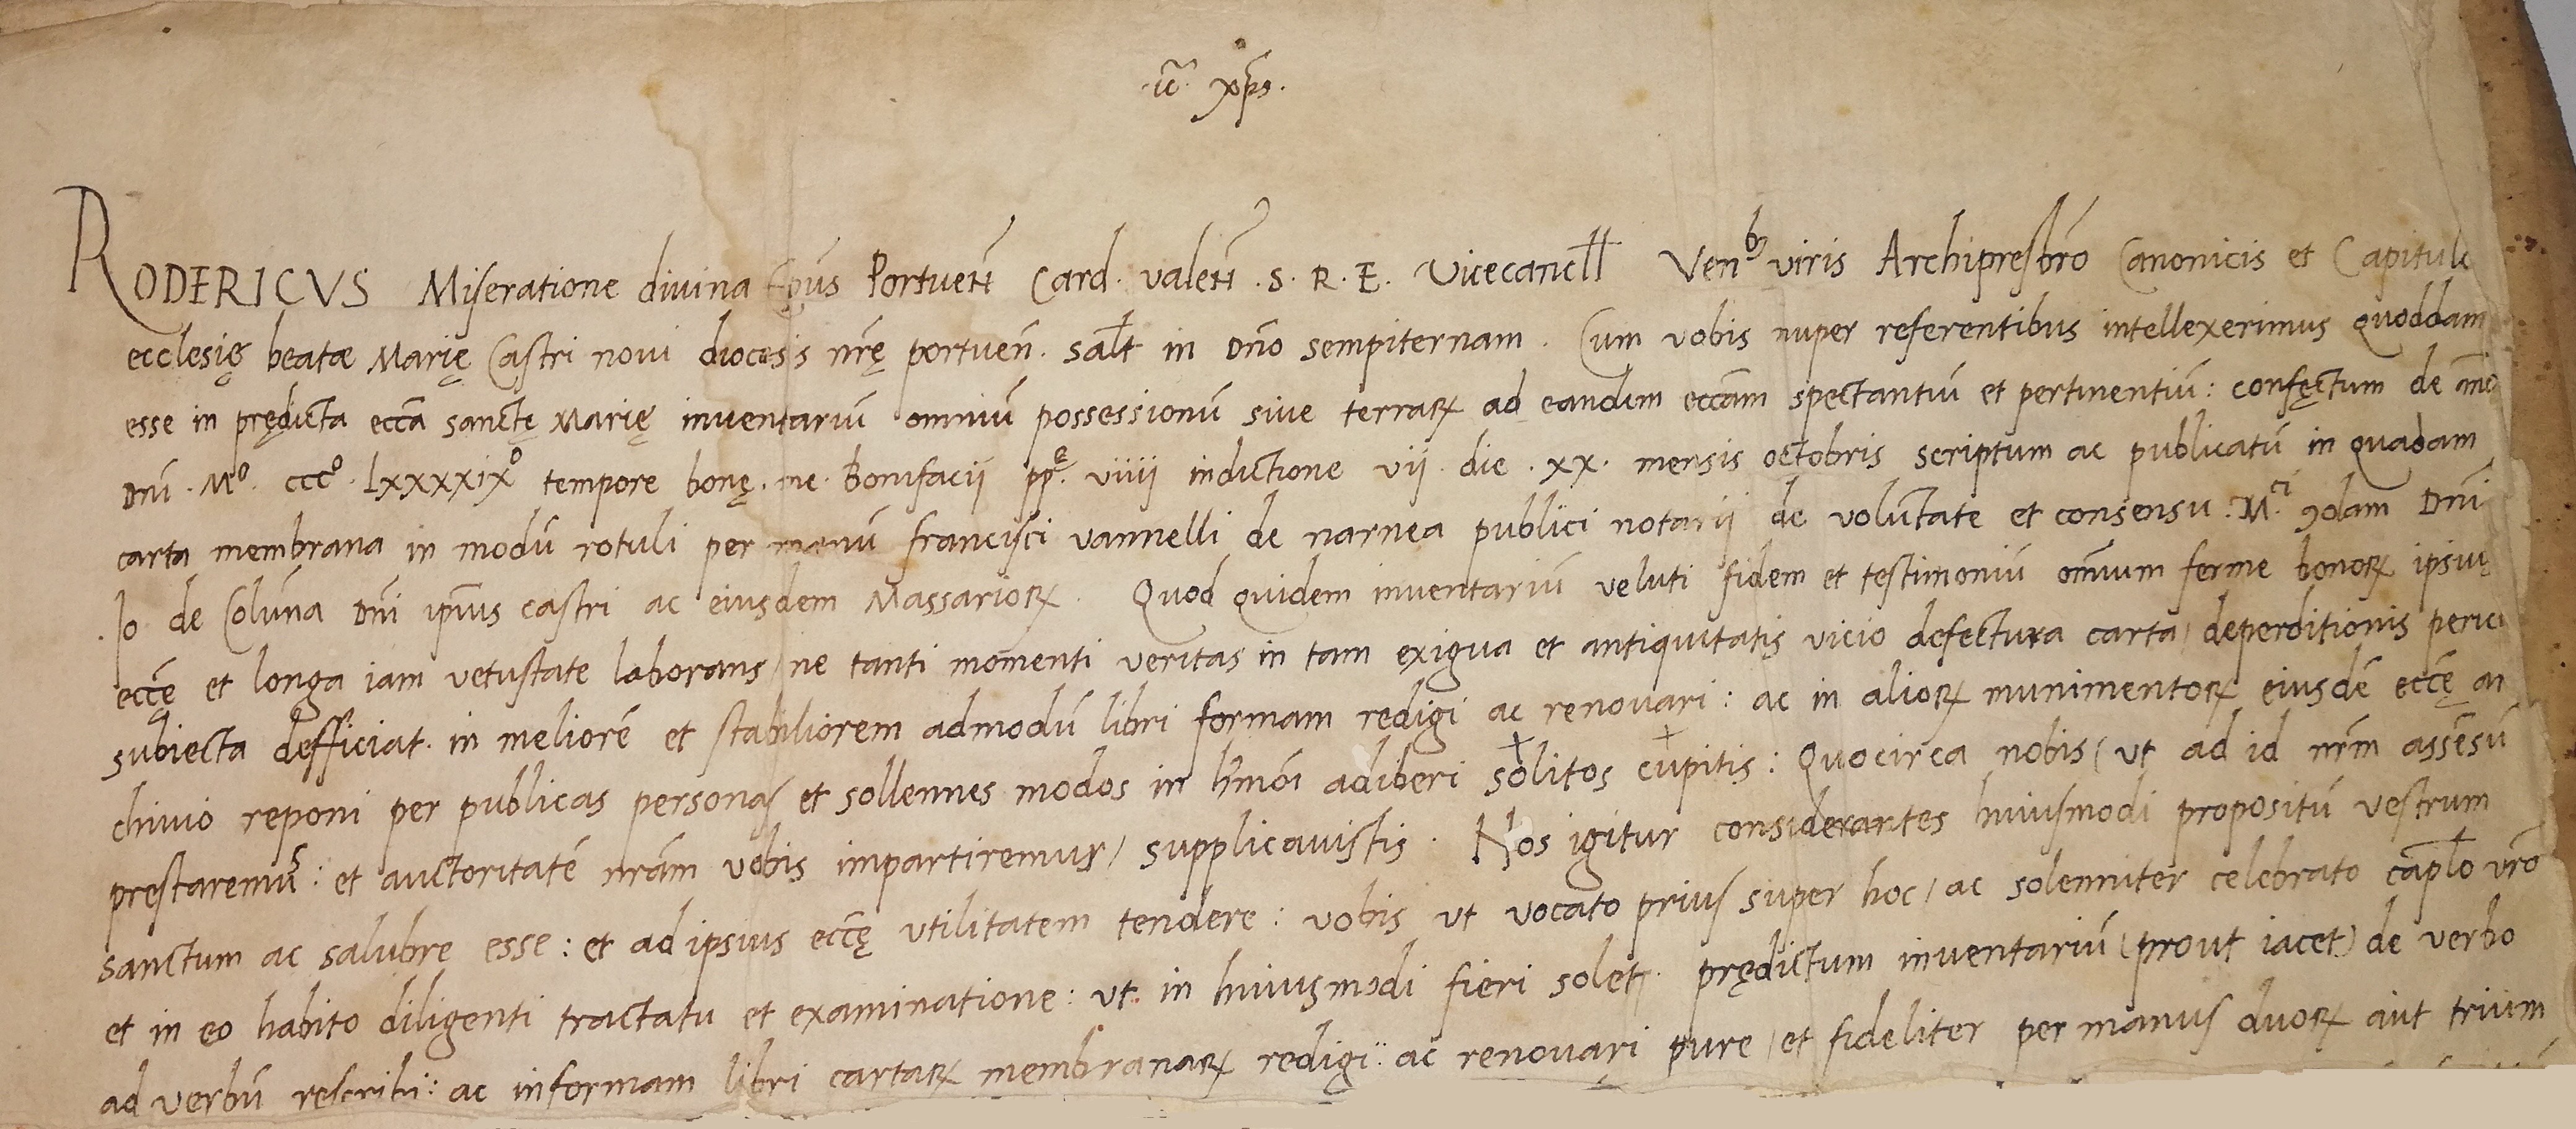 .ıc̃. xp̃s.
RODERICVS Miseratione diuina Ep̃us Portueñ Card. valeñ. S. R. E. Vicecancll̃ Venᵇꝫ viris Archipresbr̃o Canonicis et Capitulo
ecclesię beatæ Marię Castri noui diocesis nr̃ę portueñ. salt̃ in Dño sempiternam. Cum vobis nuper referentibus intellexerimus quoddam
esse in prędicta eccã sanctę Marię inuentariũ omniũ possessionũ siue terrarꝝ ad eandem eccãm spectantiũ et pertinentiũ: confęctum de
Dñi. Mº. cccº. lxxxxixº tempore bonę. me. Bonifacii pp̃ᵉ. viiii indictione vii. die. xx. mensis octobris scriptum ac publicatũ in quadam
carta membrana in modũ rotuli per manũ francisci vannelli de narnea publici notarij de voluntate et consensu. M.ᶜⁱ ꝯdam Dñi
.Io de Colũna Dñi ip̃ius castri ac eiusdem Massariorꝝ. Quod quidem inuentariũ veluti fidem et testimoniũ om̃ium ferme bonorꝝ ipsius
eccę̃ et longa iam vetustate laborans / ne tanti momenti veritas in tam exigua et antiquitatis vicio defectura carta / deperditionis peric
subiecta defficiat. in meliorẽ et stabiliorem admodũ libri formam redigi ac renouari: ac in aliorꝝ munimentorꝝ eiusdẽ eccę̃ ar
chiuio reponi per publicas personas et sollennes modos in hm̃oi adiberi solitos cupitis: Quocirca nobis (ut ad id nr̃m assẽsũ
prestaremus: et auctoritatẽ nr̃am vobis impartiremur / supplicauistis. Nos igitur considerantes huiusmodi propositũ vestrum
sanctum ac salubre esse: et ad ipsius eccę̃ vtilitatem tendere: vobis vt vocato prius super hoc / ac solenniter celebrato cap̃lo vr̃o
et in eo habito diligenti tractatu et examinatione: vt in huiusmodi fieri solet. prędictum inuentariũ (prout iacet) de verbo
ad verbũ rescribi: ac in formam libri cartarꝝ membranarꝝ redigi: ac renouari pure / et fideliter per manus duorꝝ aut trium